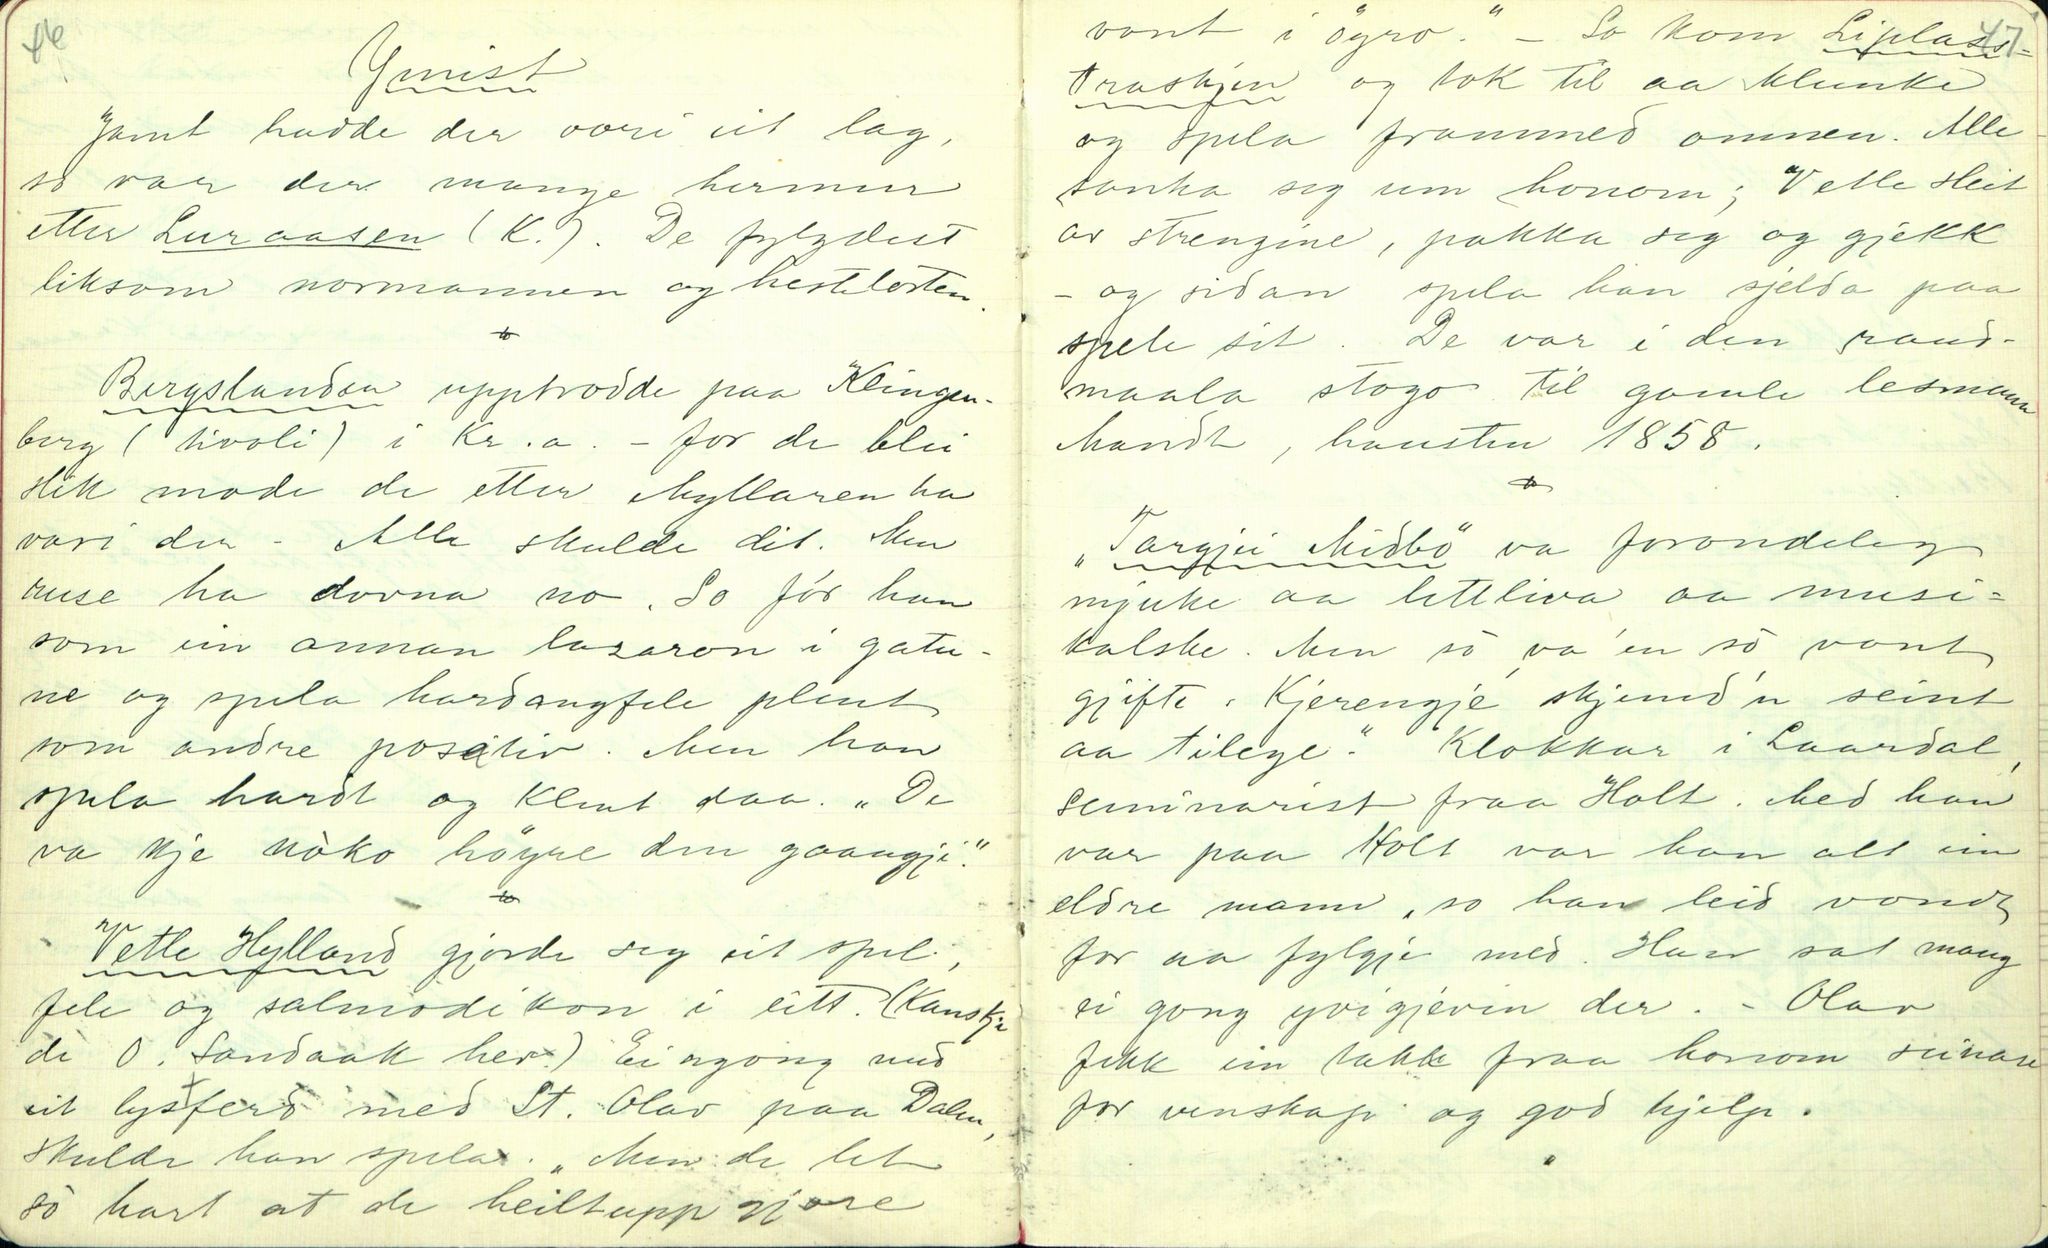 46
Ymist
Jamt hadde der vore eit lag,
so var der mange hermur
etter Luraasen (K.). De fylgdest
liksom normannen og hestelorten.
Bergslandsen upptrødde paa Klingen-
berg (tivoli) i Kr.a. - for de blei
slik mode de etter Myllaren ha
vori der - Alle skulde dit. Men
ruse ha dovna no. So fór han
som ein annan lazaron i gatu-
ne og spela hardangfele plent
som andre posetiv. Men han
spela hardt og klent daa. "De
va kje nòko høgre den gaangji."
Vetle Hylland gjorde seg eit spel,
fele og salmodikon i eitt. (Kanskje
de O. Sandaak her?) Ein gong med
eit lystferd med St. Olav paa Dalen,
skulde han spela. "Men de let
so hart at de heiltupp gjore
47
vont i øyro." - So kom Liplass-
traskjen og tok til aa klunke
og spela frammed omnen. Alle
sanka seg um honom; Vetle sleit
av strengine, pakka seg og gjekk
- og sidan spela han sjelda paa
spele sit. De var i den raud-
maala stogo til gamle lesmann
Mandt, hausten 1858.
"Targjei Midbø" va forondeleg
mjuke aa lettliva aa musi-
kalske. Men so va'en so vont
gjifte. Kjerengje skjemd'n seint
aa tilege." Klokkar i Laardal,
seminarist fraa Holt. Med han
var paa Holt var han alt ein
eldre mann, so han leid vondt
for aa fylgje med. Han sat mang
ei gong yvigjevin der. - Olav
fekk ein takk fraa honom seinare
for venskap og god hjelp.